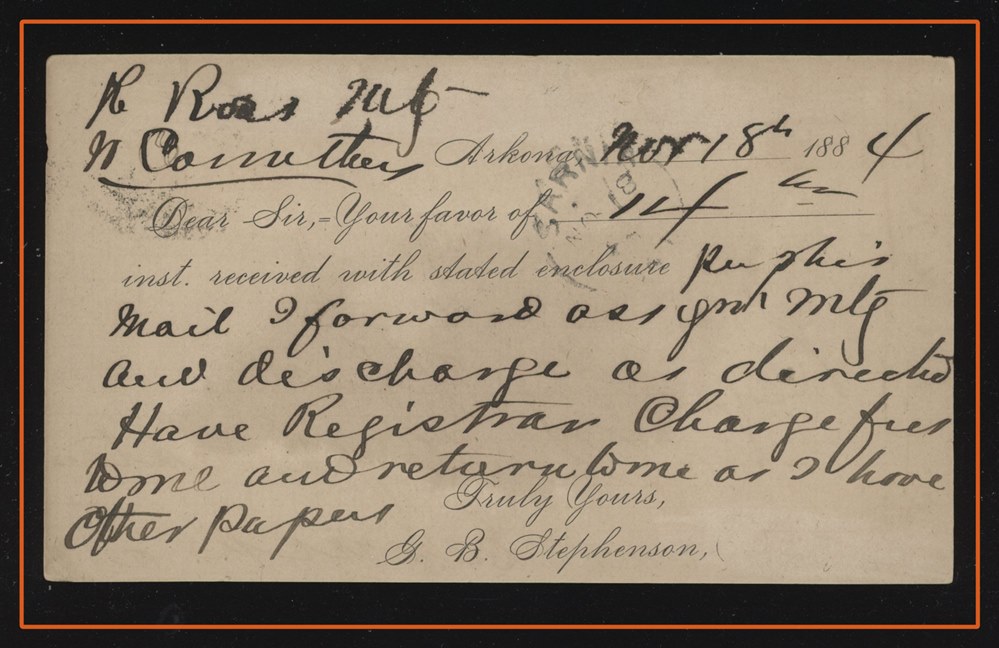 Re Ross Mtg
N Carruthers Arkona, Nov 18th 1884
Dear Sir,=Your favor of 14
inst. received with stated enclosure per this
Mail I forward assignt Mtg
and discharge as directed
Have Registrar Charge fees
to me and return to me as I have
Other Papers
Truly Yours,
G. B. Stephenson,
SARNIA